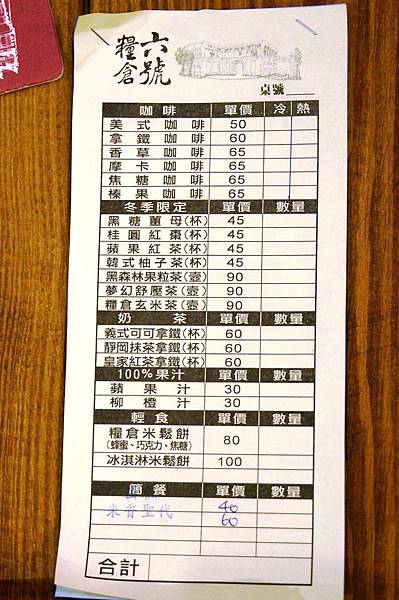 六號
糧倉
桌號
咖啡 單價 冷 熱
美式咖啡 50
拿鐵咖啡 60
香草咖啡 65
摩卡咖啡 65
焦糖咖啡 65
榛果咖啡 65
冬季限定 單價 數量
黑糖薑母(杯) 45
桂圓紅棗(杯) 45
蘋果紅茶(杯) 45
韓式柚子茶(杯) 45
黑森林果粒茶(壺) 90
夢幻舒壓茶(壺) 90
糧倉玄米茶(壺) 90
奶茶 單價 數量
義式可可拿鐵(杯) 60
靜岡抹茶拿鐵(杯) 60
皇家紅茶拿鐵(杯) 60
100%果汁 單價 數量
蘋果汁 30
柳橙汁 30
輕食 單價 數量
糧倉米鬆餅 80
(蜂蜜、巧克力、焦糖)
冰淇淋米鬆餅 100
簡餐 單價 數量
40
米香聖代 60
合計